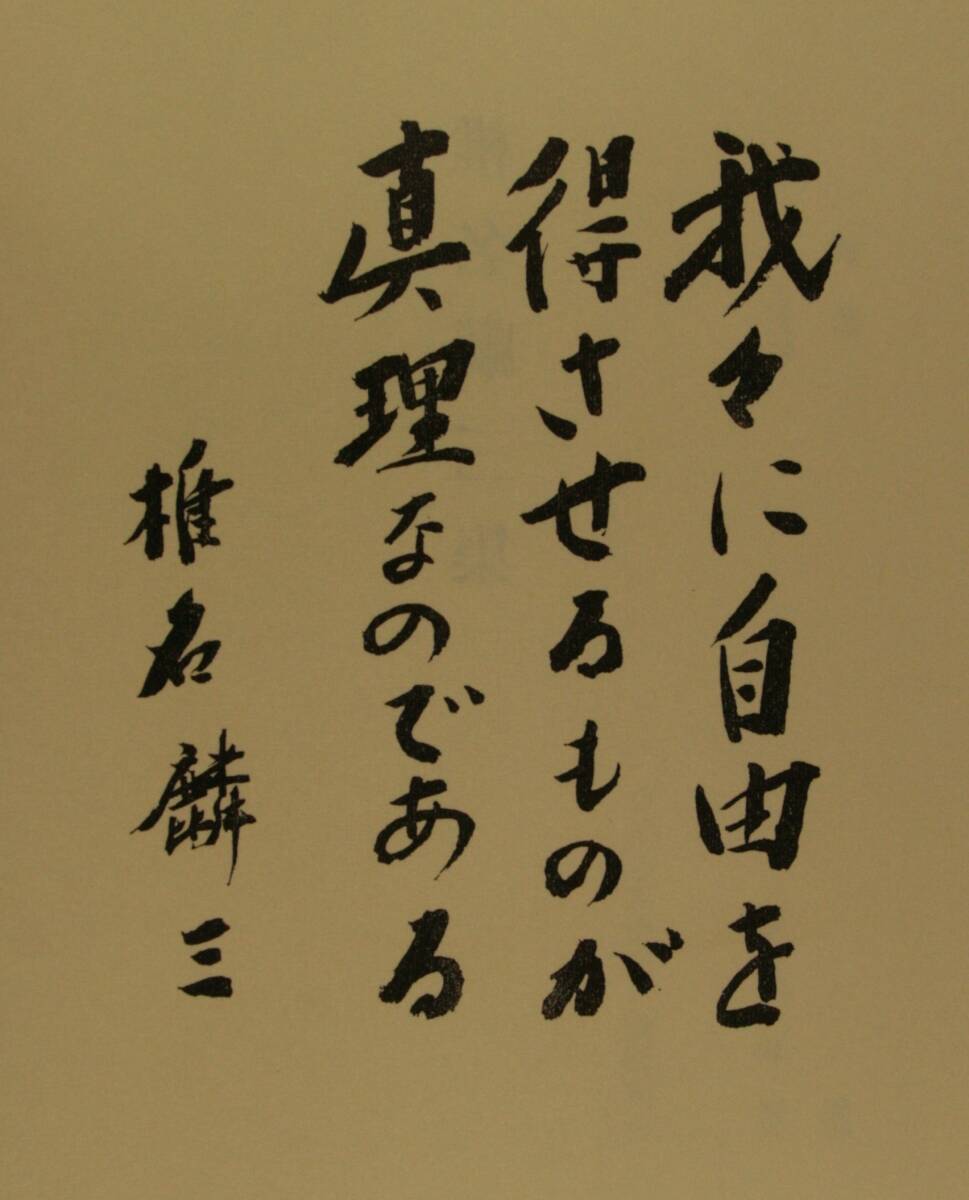 我々に自由を
得させるものが
真理なのである
椎名麟三